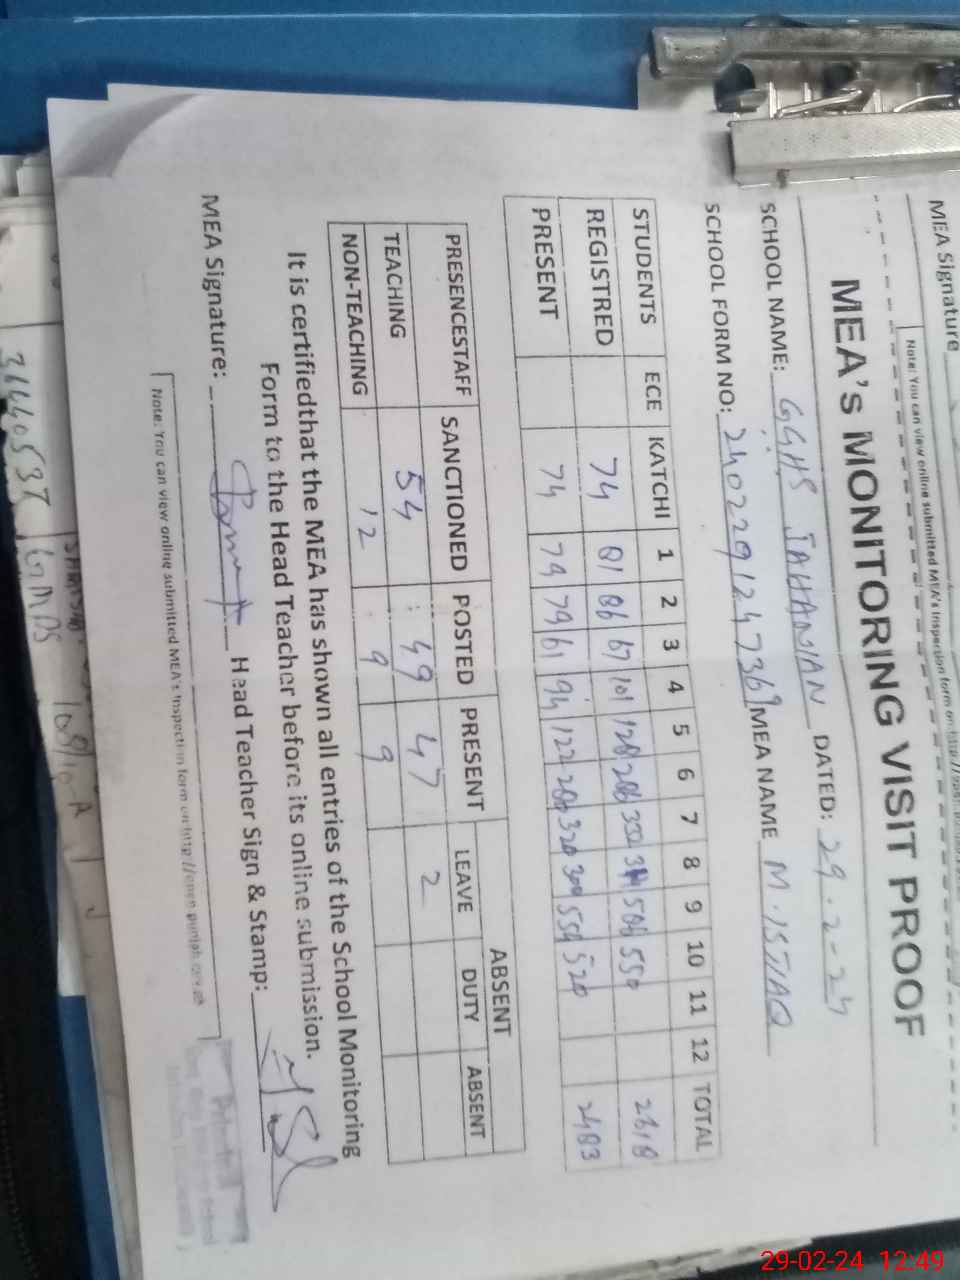 MEA Signature
Note: You can view online submitted MEA's Inspection form on http://open.punjab
MEA'S MONITORING VISIT PROOF
SCHOOL NAME: GGHS JAHANIAN DATED: 29.2-24
SCHOOL FORM NO: 240229124736 MEA NAME M.ISTIAQ
STUDENTS ECE KATCHI 1 2 3 4 5 6 7 8 9 10 11 12 TOTAL
REGISTRED 74 81 86 67 101 128 332 550 2618
PRESENT 74 79 79 61 94 122 320 554 520 2483
PRESENCESTAFF SANCTIONED POSTED PRESENT ABSENT
LEAVE DUTY ABSENT
TEACHING 54 49 47 2
NON-TEACHING 12 9 9
It is certifiedthat the MEA has shown all entries of the School Monitoring
Form to the Head Teacher before its online submission.
MEA Signature: Head Teacher Sign & Stamp:
Note: You can view online submitted MEA's Inspection form on http://open.punjab.gov.pk
GMPS
29-02-24 12:49